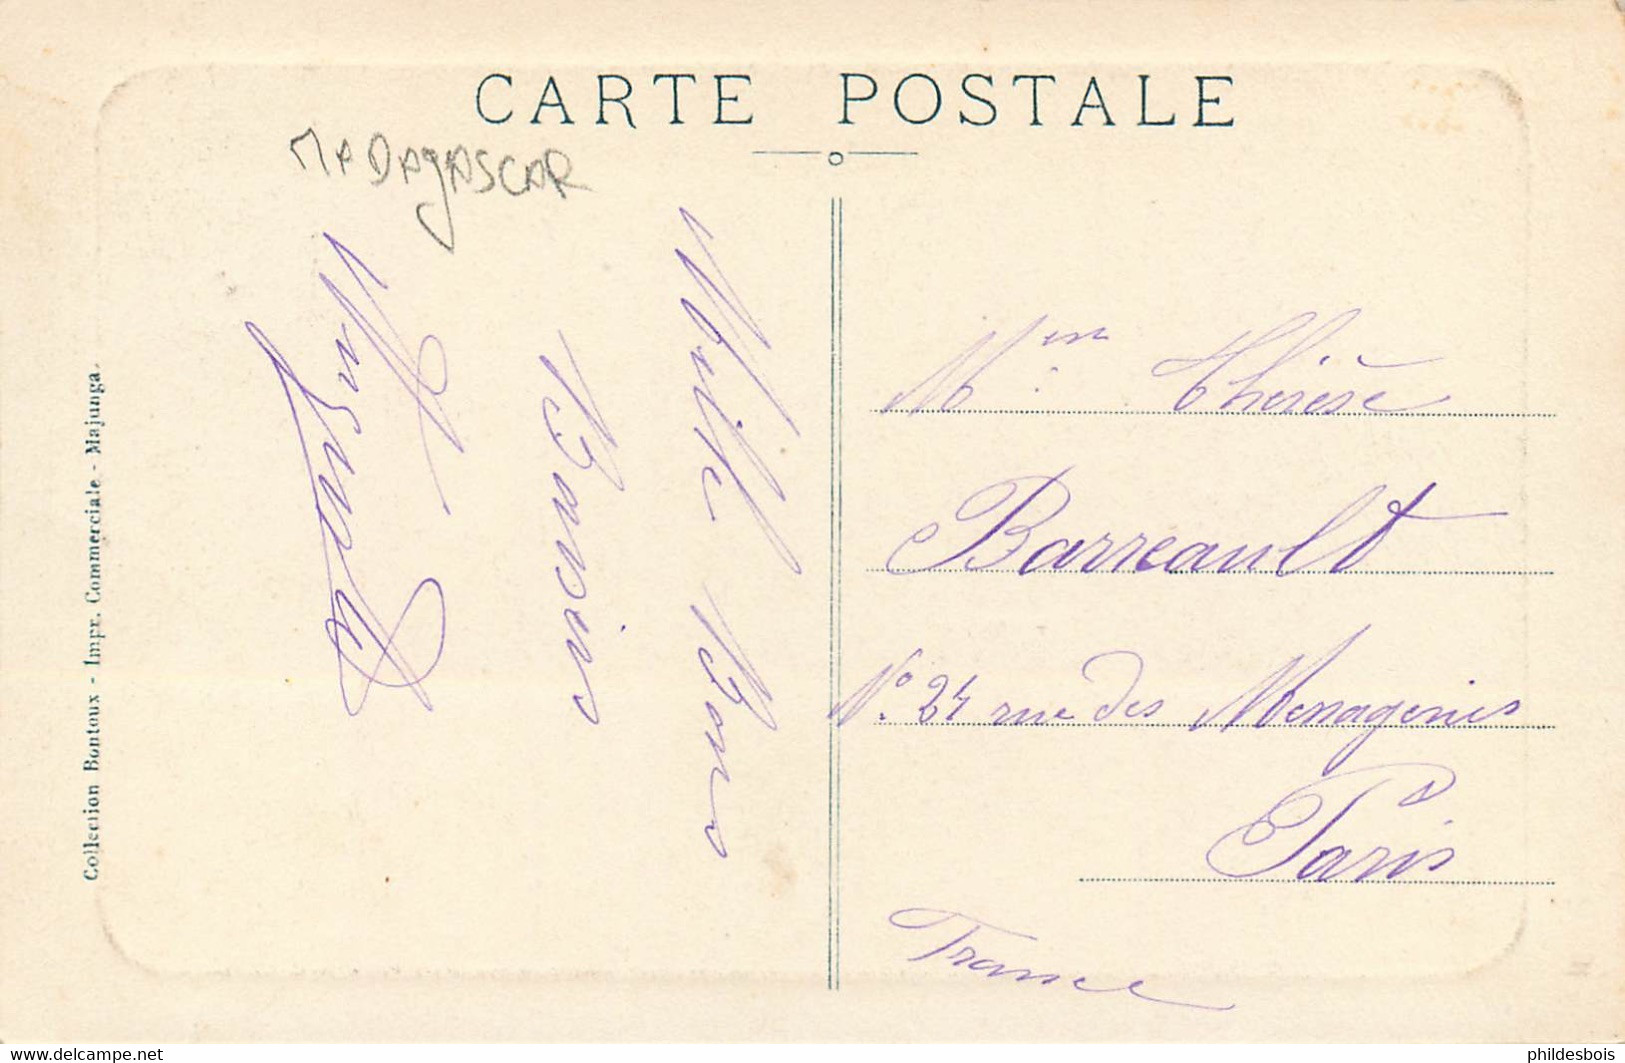 CARTE POSTALE
MADAGASCAR
Mille Bons
Baisis
Auguste
Collection Bontoux - Impr. Commerciale - Majunga.
Mem Thérèse
Barreault
N° 24 rue des Menageries
Paris
France
www.delcampe.net
phildesbois